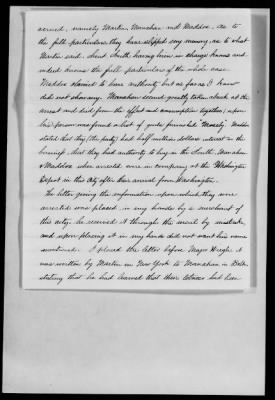 cerned, namely Martin Monahan and Maddox, as to
the full particulars, they have slipped any money, as to what
Martin said about South having been in charge knows and
indeed knows the full particulars of the whole case
Maddox claimed to have authority but as far as I know
did not show any. Monahan seemed greatly taken aback at the
arrest and died from the effect and consumption together, upon
his person was found a lot of quite funerals. Maddox
stated that they (the party) had half million dollars interest in the
business, that they had authority to buy in the South, Monahan
& Maddox when arrested were in company at the Washington
Depot in this city after their arrival from Washington.
The letter giving the information upon which they were
arrested was placed in my hands by a merchant of
this city, he received it through the mail by mistake
and upon placing it in my hands did not want his name
mentioned. I placed the letter before Major Wiegle it
was written by Martin in New York to Monahan in Balto
stating that he had learned that their tobacco had been